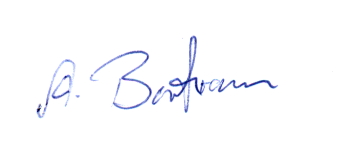 A. Bartram